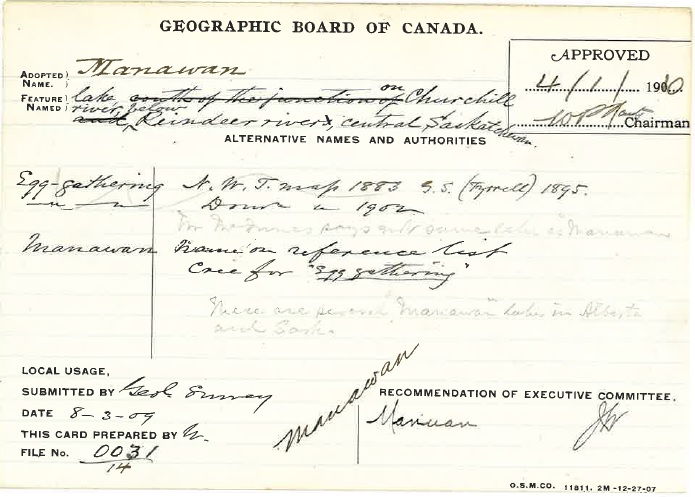 GEOGRAPHIC BOARD OF CANADA.
APPROVED
4/1/ 1910
Chairman
ADOPTED NAME. Manawan
FEATURE NAMED lake south of the junction of on Churchill
river, below
and Reindeer rivers, central Saskatchewan.
ALTERNATIVE NAMES AND AUTHORITIES
Egg-gathering N.W.T. map 1883 G.S. (Tyrrell) 1895.
" " " Dom. 1902
says not same lake as Manawan
Manawan Name on reference list
Cree for "Egg gathering"
There are several "Manawan" lakes in Alberta
and Sask.
LOCAL USAGE,
SUBMITTED BY Geol. Survey
DATE 8-3-09
THIS CARD PREPARED BY
FILE No. 0031
14
Manawan
RECOMMENDATION OF EXECUTIVE COMMITTEE.
Manuan
O.S.M.CO. 11811. 2M-12-27-07